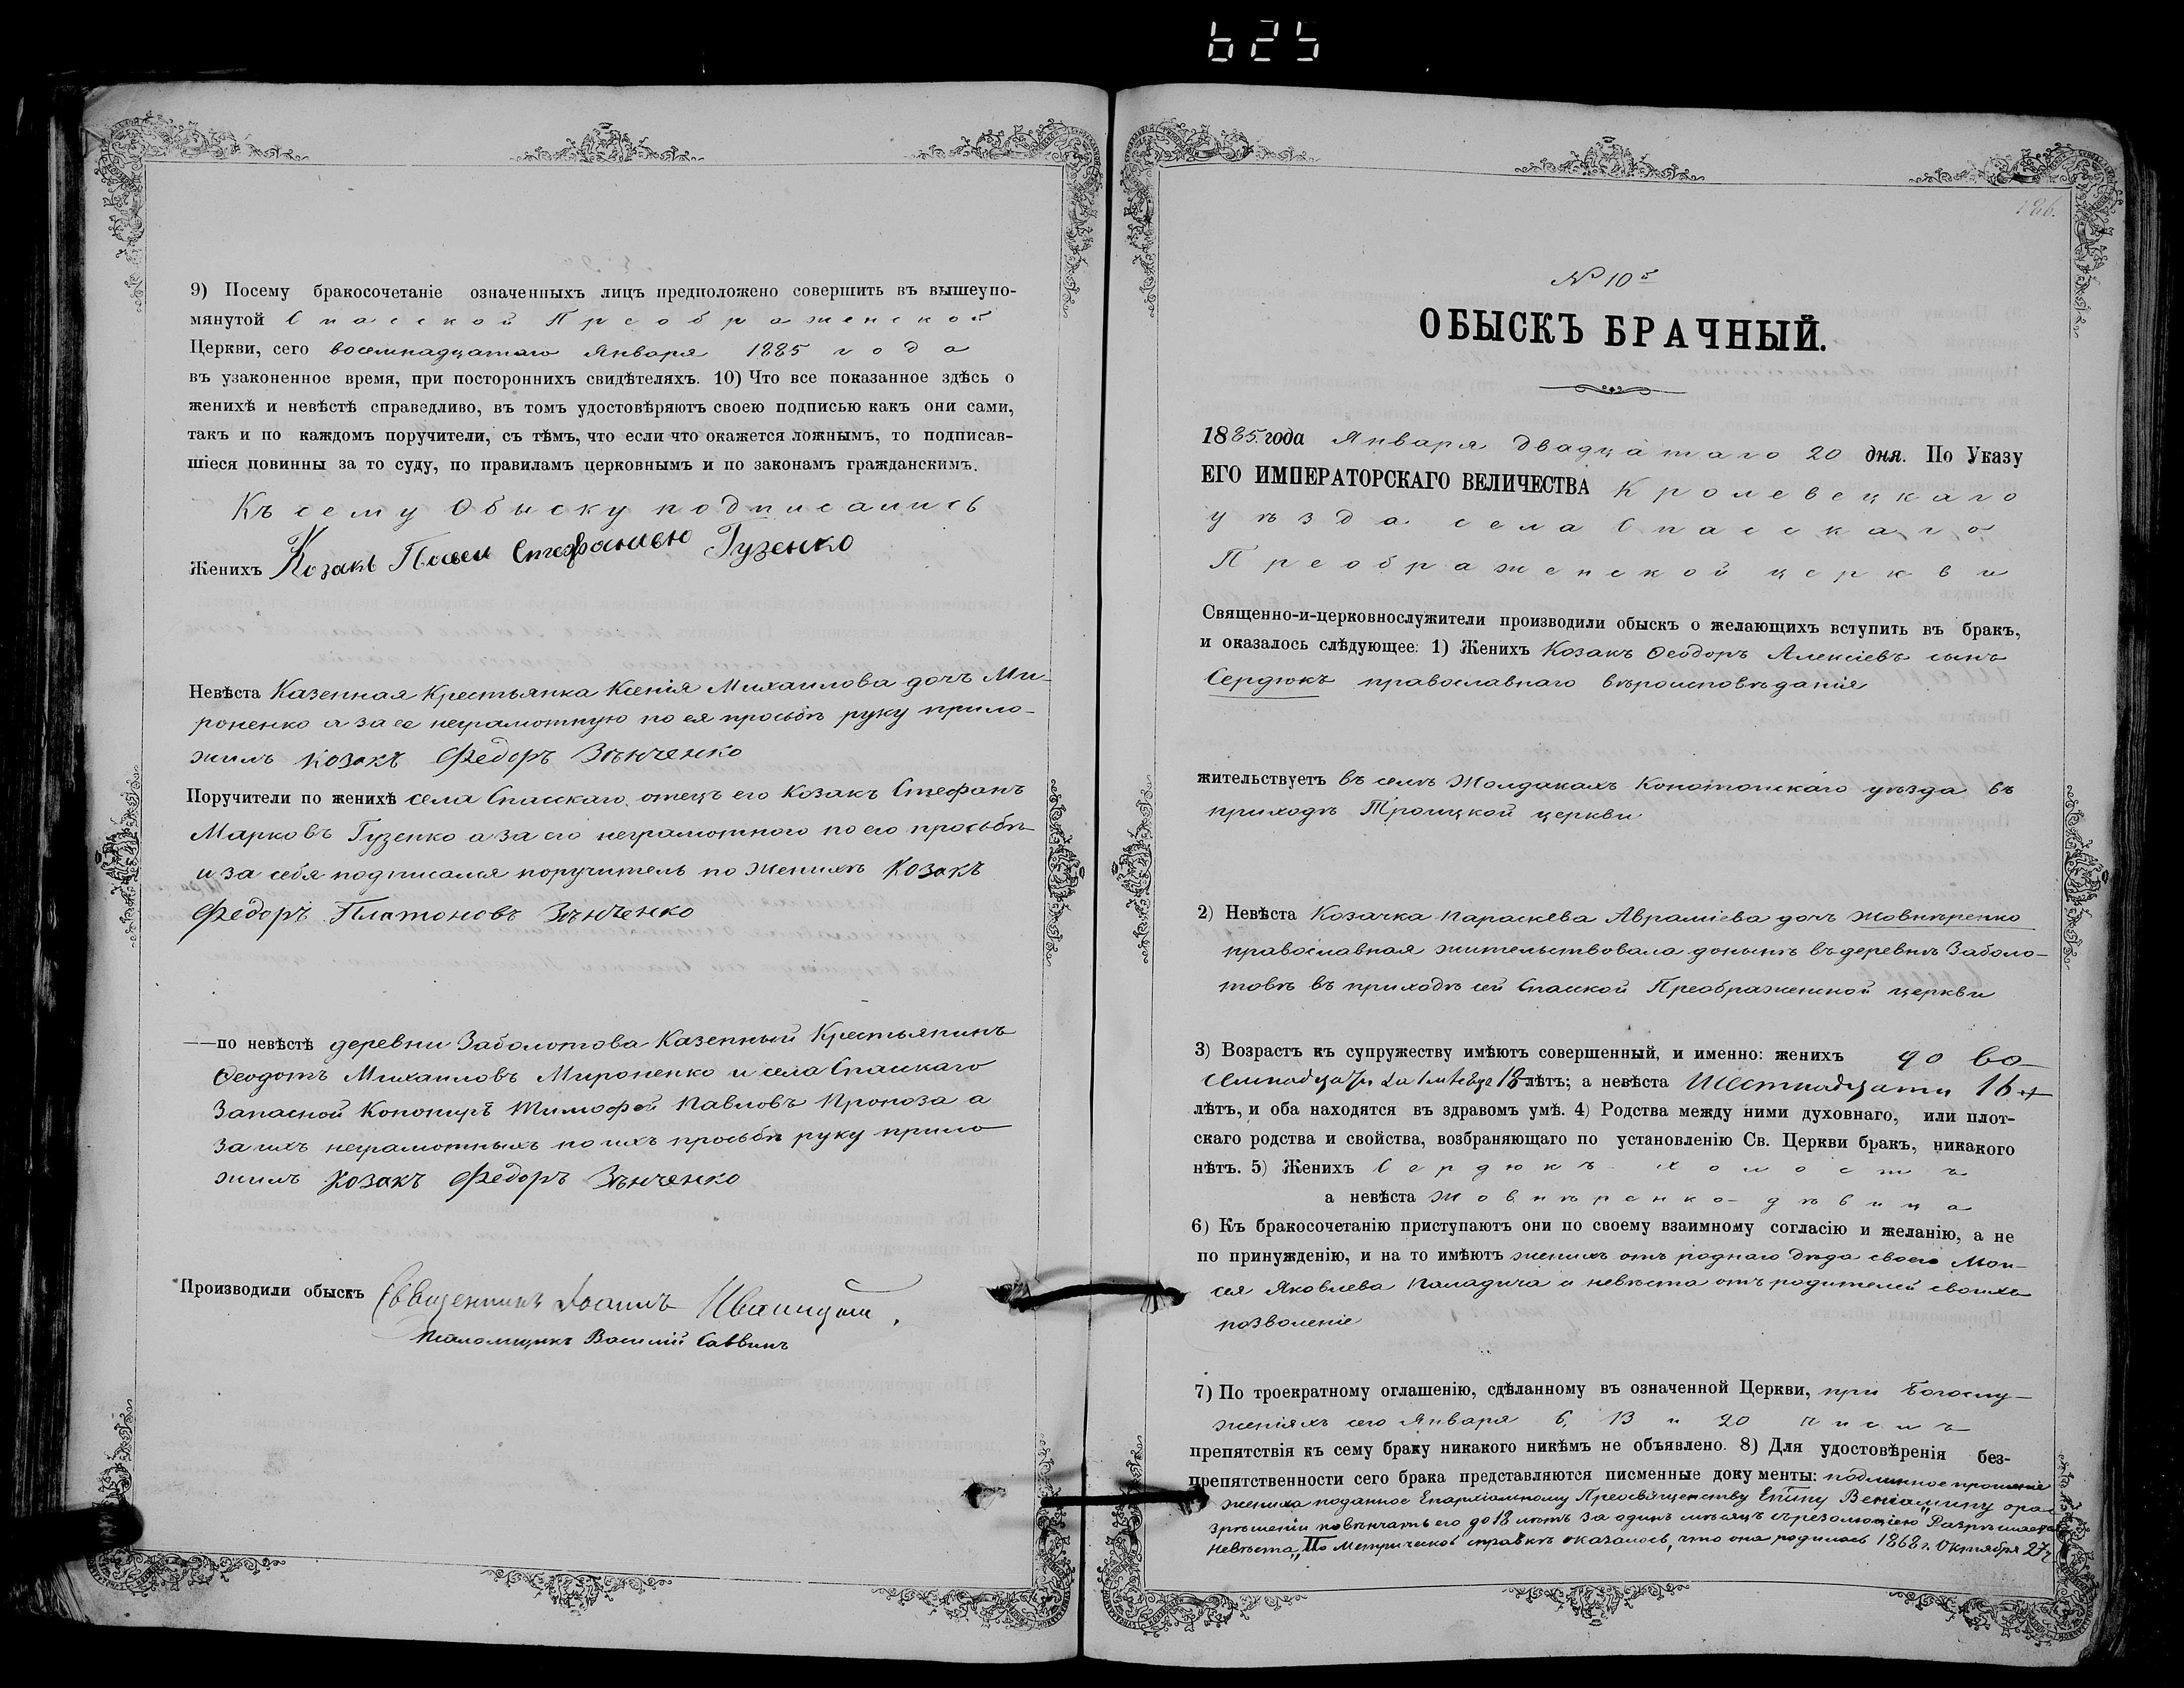 625
9) Посему бракосочетаніе означенныхъ лицъ предположено совершить въ вышеупо-
мянутой Спасской Преображенской
Церкви, сего восемнадцатаго Января 1885 года
въ узаконенное время, при постороннихъ свидѣтеляхъ. 10) Что все показанное здѣсь о
женихѣ и невѣстѣ справедливо, въ томъ удостовѣряютъ своею подписью какъ они сами,
такъ и по каждомъ поручители, съ тѣмъ, что если что окажется ложнымъ, то подписав-
шіеся повинны за то суду, по правиламъ церковнымъ и по законамъ гражданскимъ.
Къ сему Обыску подписались
Женихъ Козакъ Гузенко
Невѣста Казенная Крестьянка Ксенія Михаилова дочь Ми-
роненко а за ее неграмотную по ея просьбѣ руку прило-
жилъ Козакъ Федоръ Зѣнченко
Поручители по женихѣ села Спасскаго отецъ его Козакъ Стефанъ
Марковъ Гузенко а за его неграмотного по его просьбѣ
и за себя подписался поручитель по женихѣ Козакъ
Федоръ Платоновъ Зѣнченко
—по невѣстѣ деревни Заболотова Казенный Крестьянинъ
Ѳеодотъ Михаиловъ Мироненко и села Спасскаго
Запасной Конониръ Тимофей Павловъ Проноза а
за ихъ неграмотныхъ по ихъ просьбѣ руку прило
жилъ Козакъ Федоръ Зѣнченко
Производили обыскъ Священникъ Іоаннъ
Псаломщикъ Василій Саввинъ
186.
№ 10й
ОБЫСКЪ БРАЧНЫЙ.
1885 года Января двадцатаго 20 дня. По Указу
ЕГО ИМПЕРАТОРСКАГО ВЕЛИЧЕСТВА Кролевецкаго
уѣзда села Спасскаго
Преображенской церкви
Священно-и-церковнослужители производили обыскъ о желающихъ вступить въ бракъ,
и оказалось слѣдующее: 1) Женихъ Козакъ Ѳеодоръ Алексіевъ сынъ
Сердюкъ православнаго вѣроисповѣданія
жительствуетъ въ селѣ Жолдакахъ Конотопскаго уѣзда въ
приходѣ Троицкой церкви
2) Невѣста Козачка Параскева Авраміева дочь Жовнѣренко
православная жительствовала донынѣ въ деревнѣ Заболо-
товѣ въ приходѣ сей Спасской Преображенской церкви
3) Возрастъ къ супружеству имѣютъ совершенный, и именно: женихъ до во-
семнадцати 18 лѣтъ; а невѣста шестнадцати 16
лѣтъ, и оба находятся въ здравомъ умѣ. 4) Родства между ними духовнаго, или плот-
скаго родства и свойства, возбраняющаго по установленію Св. Церкви бракъ, никакого
нѣтъ. 5) Женихъ Сердюкъ холостъ
а невѣста Жовнѣренко - дѣвица
6) Къ бракосочетанію приступаютъ они по своему взаимному согласію и желанію, а не
по принужденію, и на то имѣютъ женихъ отъ роднаго дѣда своего Мои-
сея Яковлева Паладича и невѣста отъ родителей своихъ
позволеніе
7) По троекратному оглашенію, сдѣланному въ означенной Церкви, при Богослу-
женіяхъ сего Января 6, 13 и 20 чиселъ
препятствія къ сему браку никакого никѣмъ не объявлено. 8) Для удостовѣренія без-
препятственности сего брака представляются писменные документы: подлинное прошеніе
жениха поданное Епархіальному Преосвященству Веніамину о ра
зрѣшеніи повѣнчать его до 18 лѣтъ за одинъ мѣсяцъ съ резолюціею Разрѣшается
Невѣста, По Метрической справкѣ оказалось, что она родилась 1868 г. Октября 27